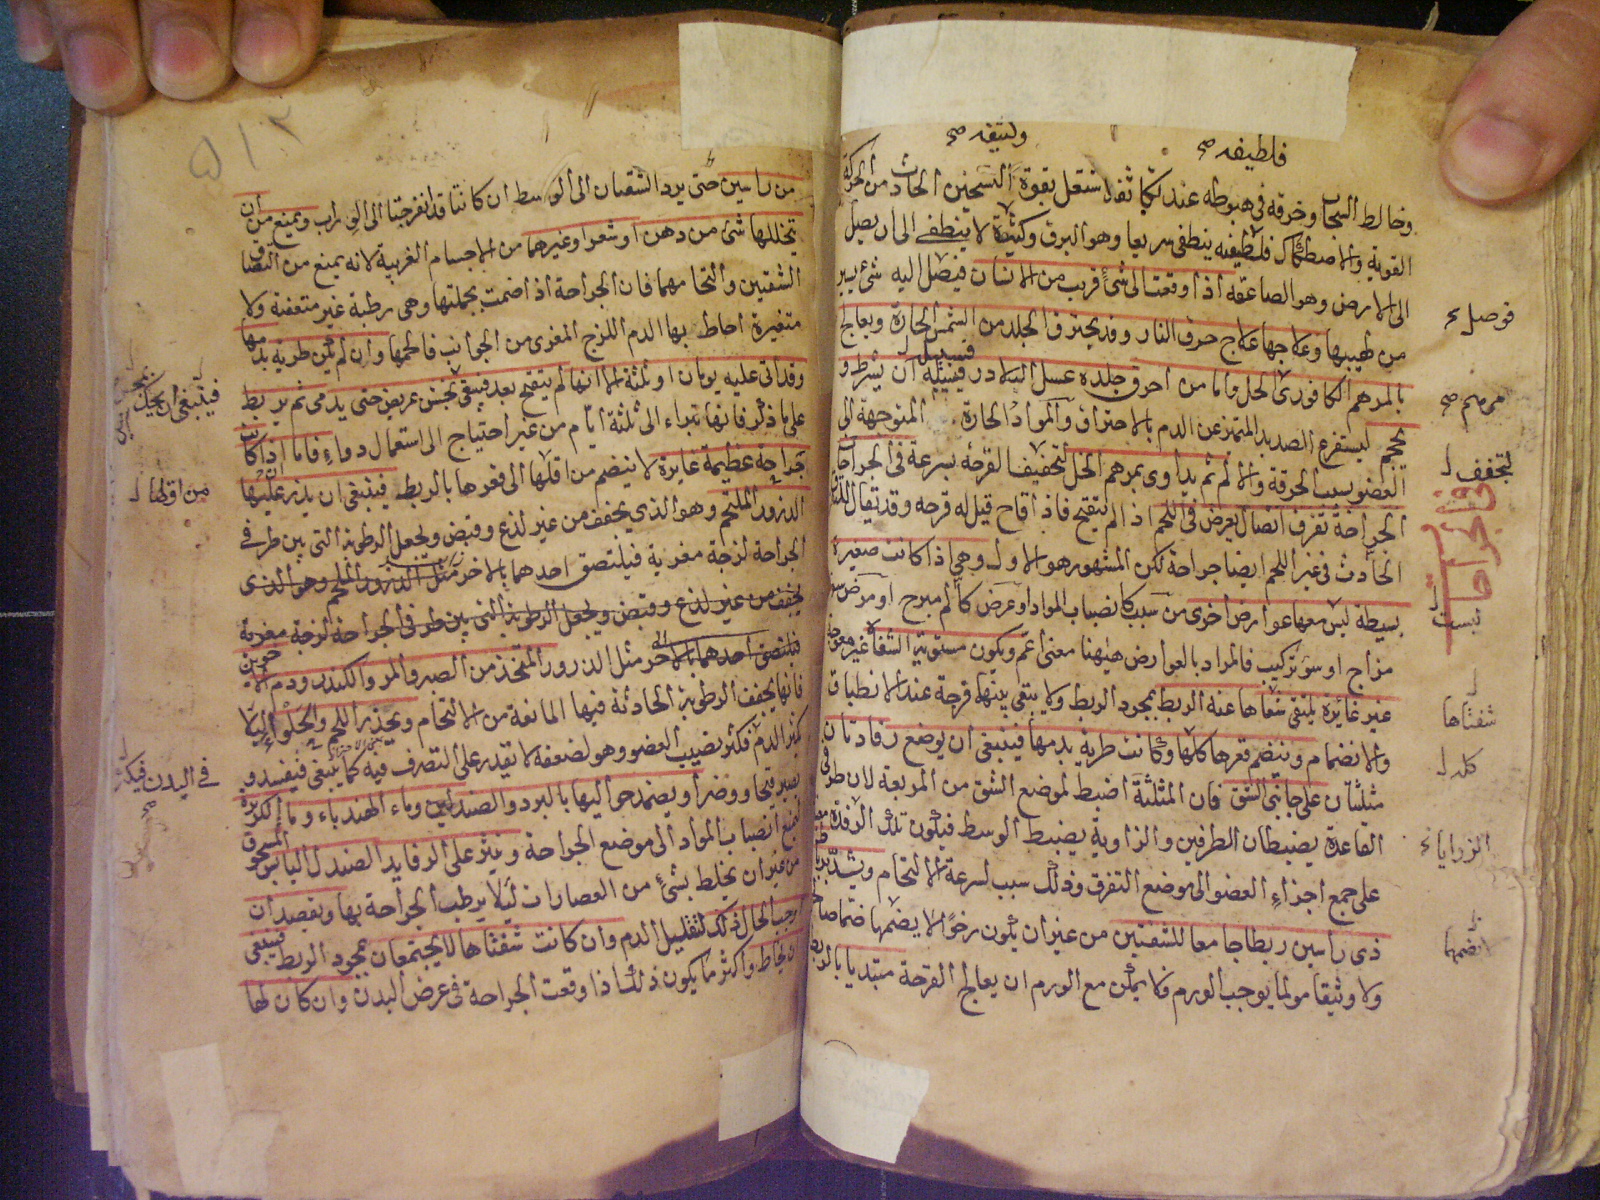 فلطيفه صح
ولثيفه صح
وخالط السحاب وخرقه فى هبوطه عند تكاثفه اشتعل بقوة التسخين الحادث من الحركة
القوية والاصطكاك فلطيفه ينطفى سريعا وهو البرق وكثيفه لا ينطفى الى ان يصل
الى الارض وهو الصاعقة اذا وقعت الى شئ قريب من الانسان فيصل اليه شئ يسير
من لهيبها وعلاجها علاج حرق النار وقد يحترق الجلد من الشمس الحارة ويعالج
بالمرهم الكافورى الخل واما من احرق جلده عسل البلادر فسبيله ان يشرط و
يحجم ليستفرغ الصديد المتميز عن الدم بالاحتراق والمواد الحارة المتوجهة الى
العضو بسبب الحرقة والالم ثم يداوى بمرهم الخل لتجفيف القرحة بسرعة فى الجراحات
الجراحة تفرق اتصال يعرض فى اللحم اذا لم يتقيح فاذا قاح قيل له قرحة وقد يقال للتفرق
الحادث فى غير اللحم ايضا جراحة لكن المشهور هو الاول وهى اذا كانت صغيرة
بسيطة ليس معها عوارض اخرى من سبب كانصباب المواد او عرض كالم مبرح او مرض سوء
مزاج او سوء تركيب فالمراد بالعوارض ههنا معنى اعم ويكون مستوية الشفاه غير معوجة
غير غايرة يلتقى شفاها عند الربط بمجرد الربط ولا يبقى بينها فرجة عند الانطباق
والانضمام وينضم قعرها كلها وكانت طرية بدمها فينبغى ان يوضع رفادتان
مثلثتان على جانبى الشق فان المثلثة اضبط لموضع الشق من المربعة لان طرفى
القاعدة يضبطان الطرفين والزاوية يضبط الوسط فيكون تلك الرفادة
على جمع اجزاء العضو الى موضع التفرق وذلك سبب لسرعة الالتحام ويشد برباط
ذى راسين ربطا جامعا للشفتين من غير ان يكون رخوا لا يضمها ضما صالحا
ولا وثيقا مولما يوجب الورم فلا يمكن مع الورم ان يعالج القرحة مبتديا بالربط
فوصل
مرهم صح
لتجفف
فى الجراحات
ليست
شفتاها
كله
الزوايا
من راسين حتى يرد الشفتان الى الوسط ان كانتا قد انفرجتا الى الوراب ويمنع من ان
يتخللها شئ من دهن او شعر او غيرهما من الاجسام الغريبة لانه يمنع من التصاق
الشفتين والتحامهما فان الجراحة اذا ضمت بجملتها وهى رطبة غير متعفنة ولا
متغيرة احاط بها الدم اللزج المغرى من الجوانب فالحمها وان لم يكن طرية بدمها
وقد اتى عليه يومان او ثلثة الا انها لم يتقيح بعد فينبغى بخشن عريض حتى يدمى ثم يربط
على ما ذكر فانها تبراء الى ثلثة ايام من غير احتياج الى استعمال دواء فاما اذا كانت
جراحة عظيمة غايرة لا ينضم من اقلها الى قعرها بالربط فينبغى ان يذر عليها
الذرور الملحم وهو الذى يجفف من غير لذع وقبض ويجعل الرطوبة التى بين طرفى
الجراحة لزجة مغرية فيلتصق احدهما بالاخر مثل الذرور الملحم وهو الذى
يجفف من غير لذع وقبض ويجعل الرطوبة التى بين طرفى الجراحة لزجة مغرية
فيلتصق احدهما بالاخر مثل الذرور المتخذ من الصبر والمر والكندر ودم الاخوين
فانها يجفف الرطوبة الحادثة فيها المانعة من الالتحام ويحذر اللحم والحلواء ليلا
يكثر الدم فيكثر نصيب العضو وهو لضعفه لا يقدر على التصرف فيه كما ينبغى فيفسد و
يصير قيحا ووضرا ويضمد حواليها بالبرد والصندلين وماء الهندباء وماء الكزبرة
لمنع انصباب المواد الى موضع الجراحة وينثر على الرفايد الصندل اليابس المسحوق
من غير ان يخلط بشئ من العصارات ليلا يرطب الجراحة بها ويفصد ان
اوجب الحال ذلك لتقليل الدم وان كانت شفتاها لا يجتمعان بمجرد الربط فينبغى
ان يخاط واكثر ما يكون ذلك اذا وقعت الجراحة فى عرض البدن وان كان لها
فينبغى ان يحك
من اولها
فى البدن فيكثر